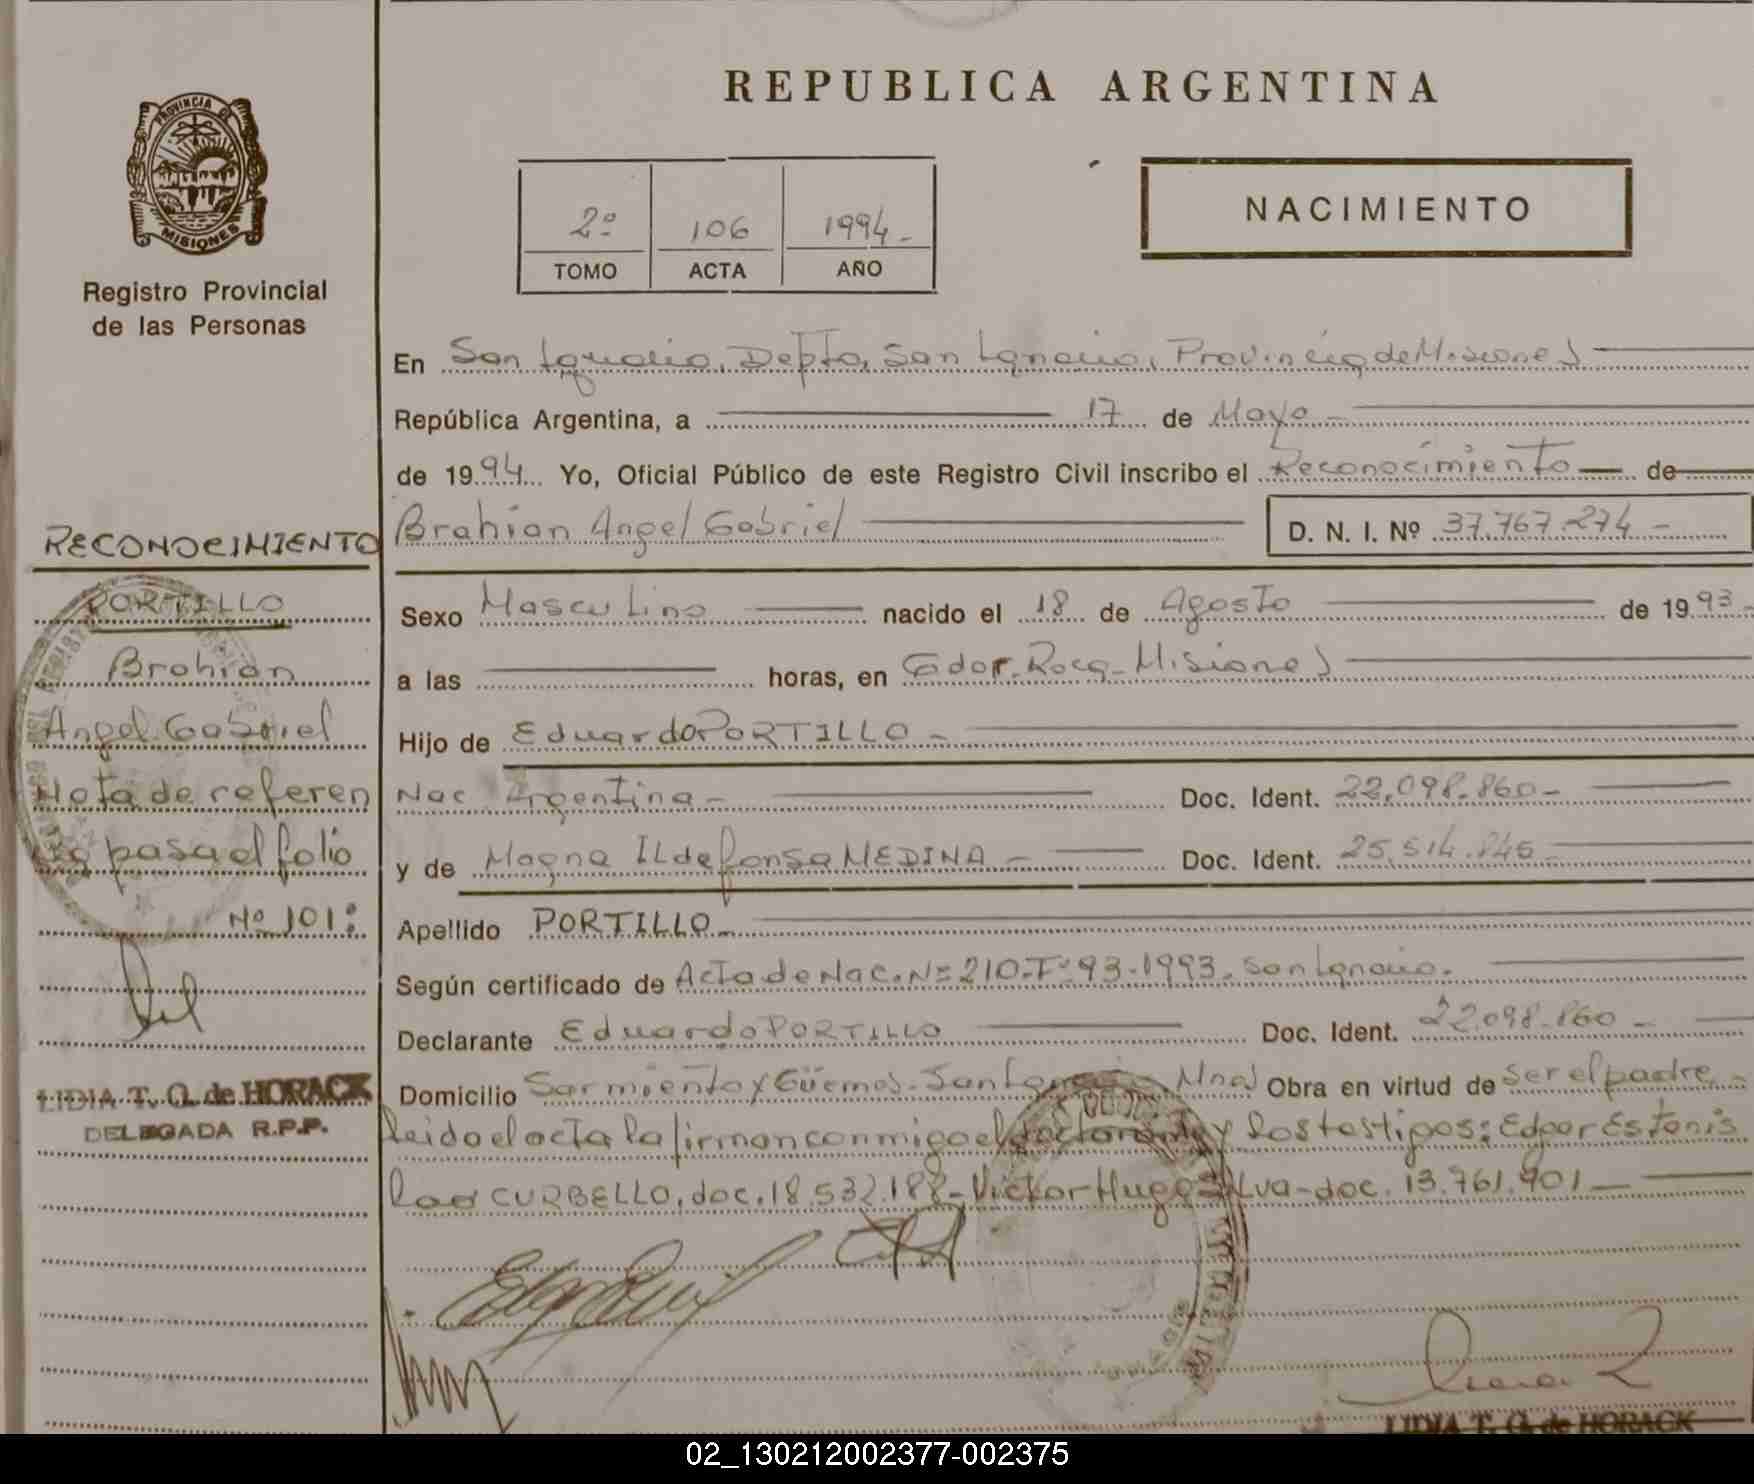 REPUBLICA ARGENTINA
PROVINCIA DE
MISIONES
Registro Provincial
de las Personas
2º 106 1994.-
TOMO ACTA AÑO
NACIMIENTO
En San Ignacio, Depto, San Ignacio, Provincia de Misiones
República Argentina, a 17 de Mayo -
de 1994. Yo, Oficial Público de este Registro Civil inscribo el Reconocimiento de
Brahian Angel Gabriel D. N. I. Nº 37.767.274 -
Sexo Masculino nacido el 18 de Agosto de 1993 -
a las horas, en Gdor. Roca - Misiones
Hijo de Eduardo PORTILLO -
Nac. Argentina - Doc. Ident. 22.098.860 -
y de Magna ILdefonsa MEDINA - Doc. Ident. 25.514.845 -
Apellido PORTILLO -
Según certificado de Acta de Nac. Nº 210-Tº 93-1993. San Ignacio.
Declarante Eduardo PORTILLO Doc. Ident. 22.098.860 -
Domicilio Sarmiento y Güemes - San Ignacio Mnes Obra en virtud de ser el padre -
Leido el acta la firman conmigo el y los testigos: Edgar Estanis
lao CURBELLO, doc. 18.532.188 - Victor Hugo Silva - doc. 13.761.901 -
LIDIA T. Q. de HORACK
RECONOCIMIENTO
PORTILLO
Brahian
Angel Gabriel
Nota de referen
cia pasa al folio
Nº 101:
LIDIA T. Q. de HORACK
DELEGADA R.P.P.
02_130212002377-002375